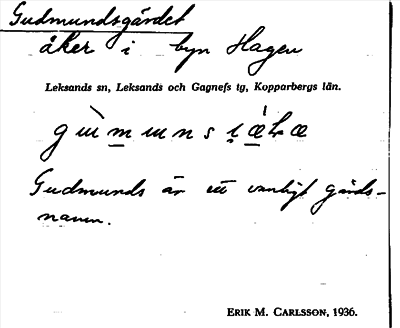 Gudmundsgärdet
åker i byn Hagen
Leksands sn, Leksands och Gagnefs tg, Kopparbergs län.
Gudmunds är ett vanligt gårds-
namn.
ERIK M. CARLSSON, 1936.